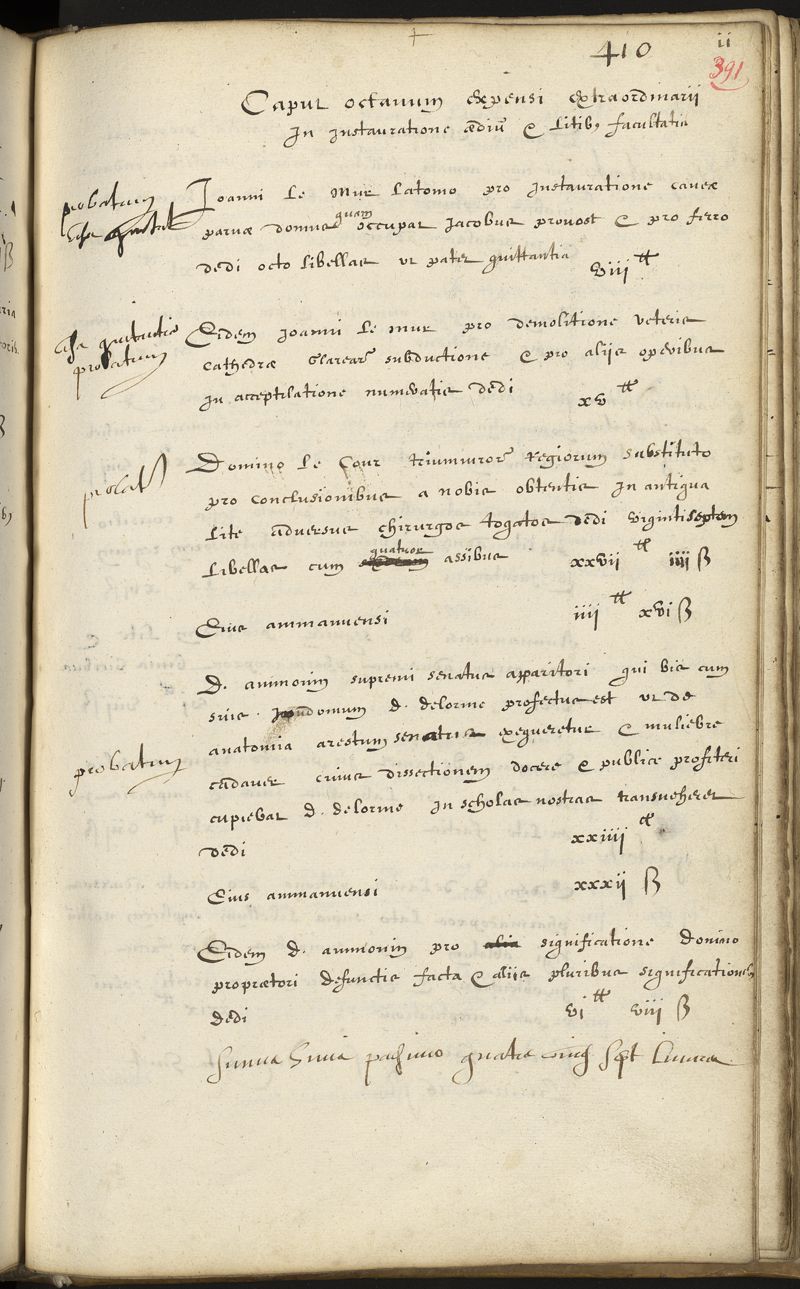 410 ii
391
Caput octauum expensi extraordinarii
In Instauratione ædiū & Litibꝰ facultatis
probatum
Ioanni Le Mur Latomo pro Instauratione caueæ
paruæ domus quam occupat Jacobus prouost & pro ferro
dedi octo libellas ut patet quittantia viii ₶
probatum
Eidem Joanni Le mur pro demolitione veteris
cathedræ Glarearū subductione & pro aliis operibus
In acceptilatione numeratis dedi xv ₶
probatū
Domino Le Cour triumuirorū regiorum substituto
pro conclusionibus a nobis obtentis In antiqua
Lite aduersus chirurgos togatos dedi viginti septem
Libellas cum quatuor assibus xxvii ₶ iiii ß
Eius ammanuensi iiii ₶ xvi ß
probatum
D. ammonin supremi senatus apparitori qui bis cum
suis domum D. delorme profectus est ut de
anatomia arestum senatus exequeretur & muliebre
cadauer cuius dissectionem docere & publice profiteri
cupiebat D. delorme In scholas nostras transueheret
dedi xxiiii ₶
Eius ammanuensi xxxii ß
Eidem D. ammonin pro alia significatione domino
proprætori defunctis facta & aliis pluribus significationibꝰ
dedi vi ₶ viii ß
quatre vingt sept liures